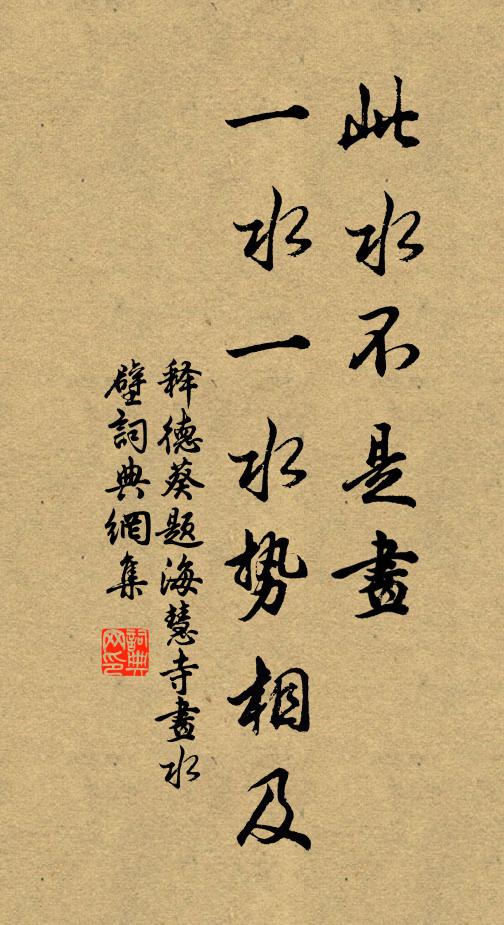 此水不是畫
一水一水勢相及
释德葵题海慧寺畫水
壁詞典網集
詞典
网印